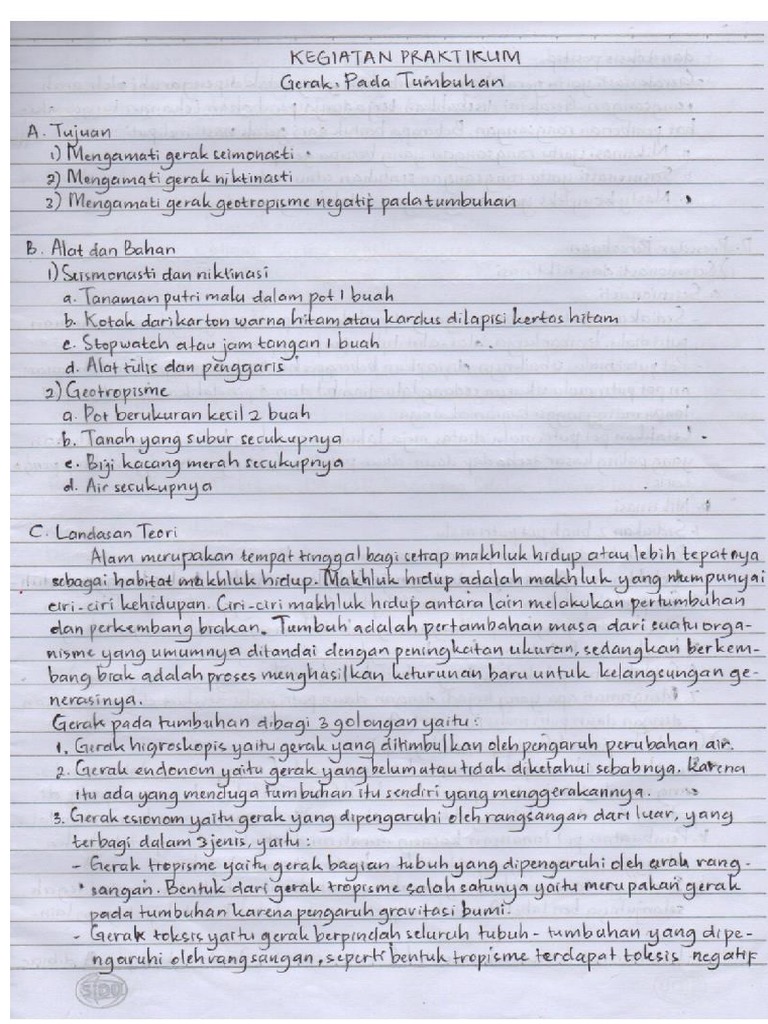 KEGIATAN PRAKTIKUM
Gerak Pada Tumbuhan
A. Tujuan
1) Mengamati gerak seimonasti
2) Mengamati gerak niktinasti
3) Mengamati gerak geotropisme negatif pada tumbuhan
B. Alat dan Bahan
1) Seismonasti dan niktinasi
a. Tanaman putri malu dalam pot 1 buah
b. Kotak dari karton warna hitam atau kardus dilapisi kertas hitam
c. Stopwatch atau jam tangan 1 buah
d. Alat tulis dan penggaris
2) Geotropisme
a. Pot berukuran kecil 2 buah
b. Tanah yang subur secukupnya
c. Biji kacang merah secukupnya
d. Air secukupnya
C. Landasan Teori
Alam merupakan tempat tinggal bagi setiap makhluk hidup atau lebih tepatnya
sebagai habitat makhluk hidup. Makhluk hidup adalah makhluk yang mempunyai
ciri-ciri kehidupan. Ciri-ciri makhluk hidup antara lain melakukan pertumbuhan
dan perkembang biakan. Tumbuh adalah pertambahan masa dari suatu orga-
nisme yang umumnya ditandai dengan peningkatan ukuran, sedangkan berkem-
bang biak adalah proses menghasilkan keturunan baru untuk kelangsungan ge-
nerasinya.
Gerak pada tumbuhan dibagi 3 golongan yaitu :
1. Gerak higroskopis yaitu gerak yang ditimbulkan oleh pengaruh perubahan air.
2. Gerak endonom yaitu gerak yang belum atau tidak diketahui sebabnya. Karena
itu ada yang menduga tumbuhan itu sendiri yang menggerakannya.
3. Gerak esionom yaitu gerak yang dipengaruhi oleh rangsangan dari luar, yang
terbagi dalam 3 jenis, yaitu :
- Gerak tropisme yaitu gerak bagian tubuh yang dipengaruhi oleh arah rang-
sangan. Bentuk dari gerak tropisme salah satunya yaitu merupakan gerak
pada tumbuhan karena pengaruh gravitasi bumi.
- Gerak toksis yaitu gerak berpindah seluruh tubuh-tumbuhan yang dipe-
ngaruhi oleh rangsangan, seperti bentuk tropisme terdapat toksis negatif
SIDU